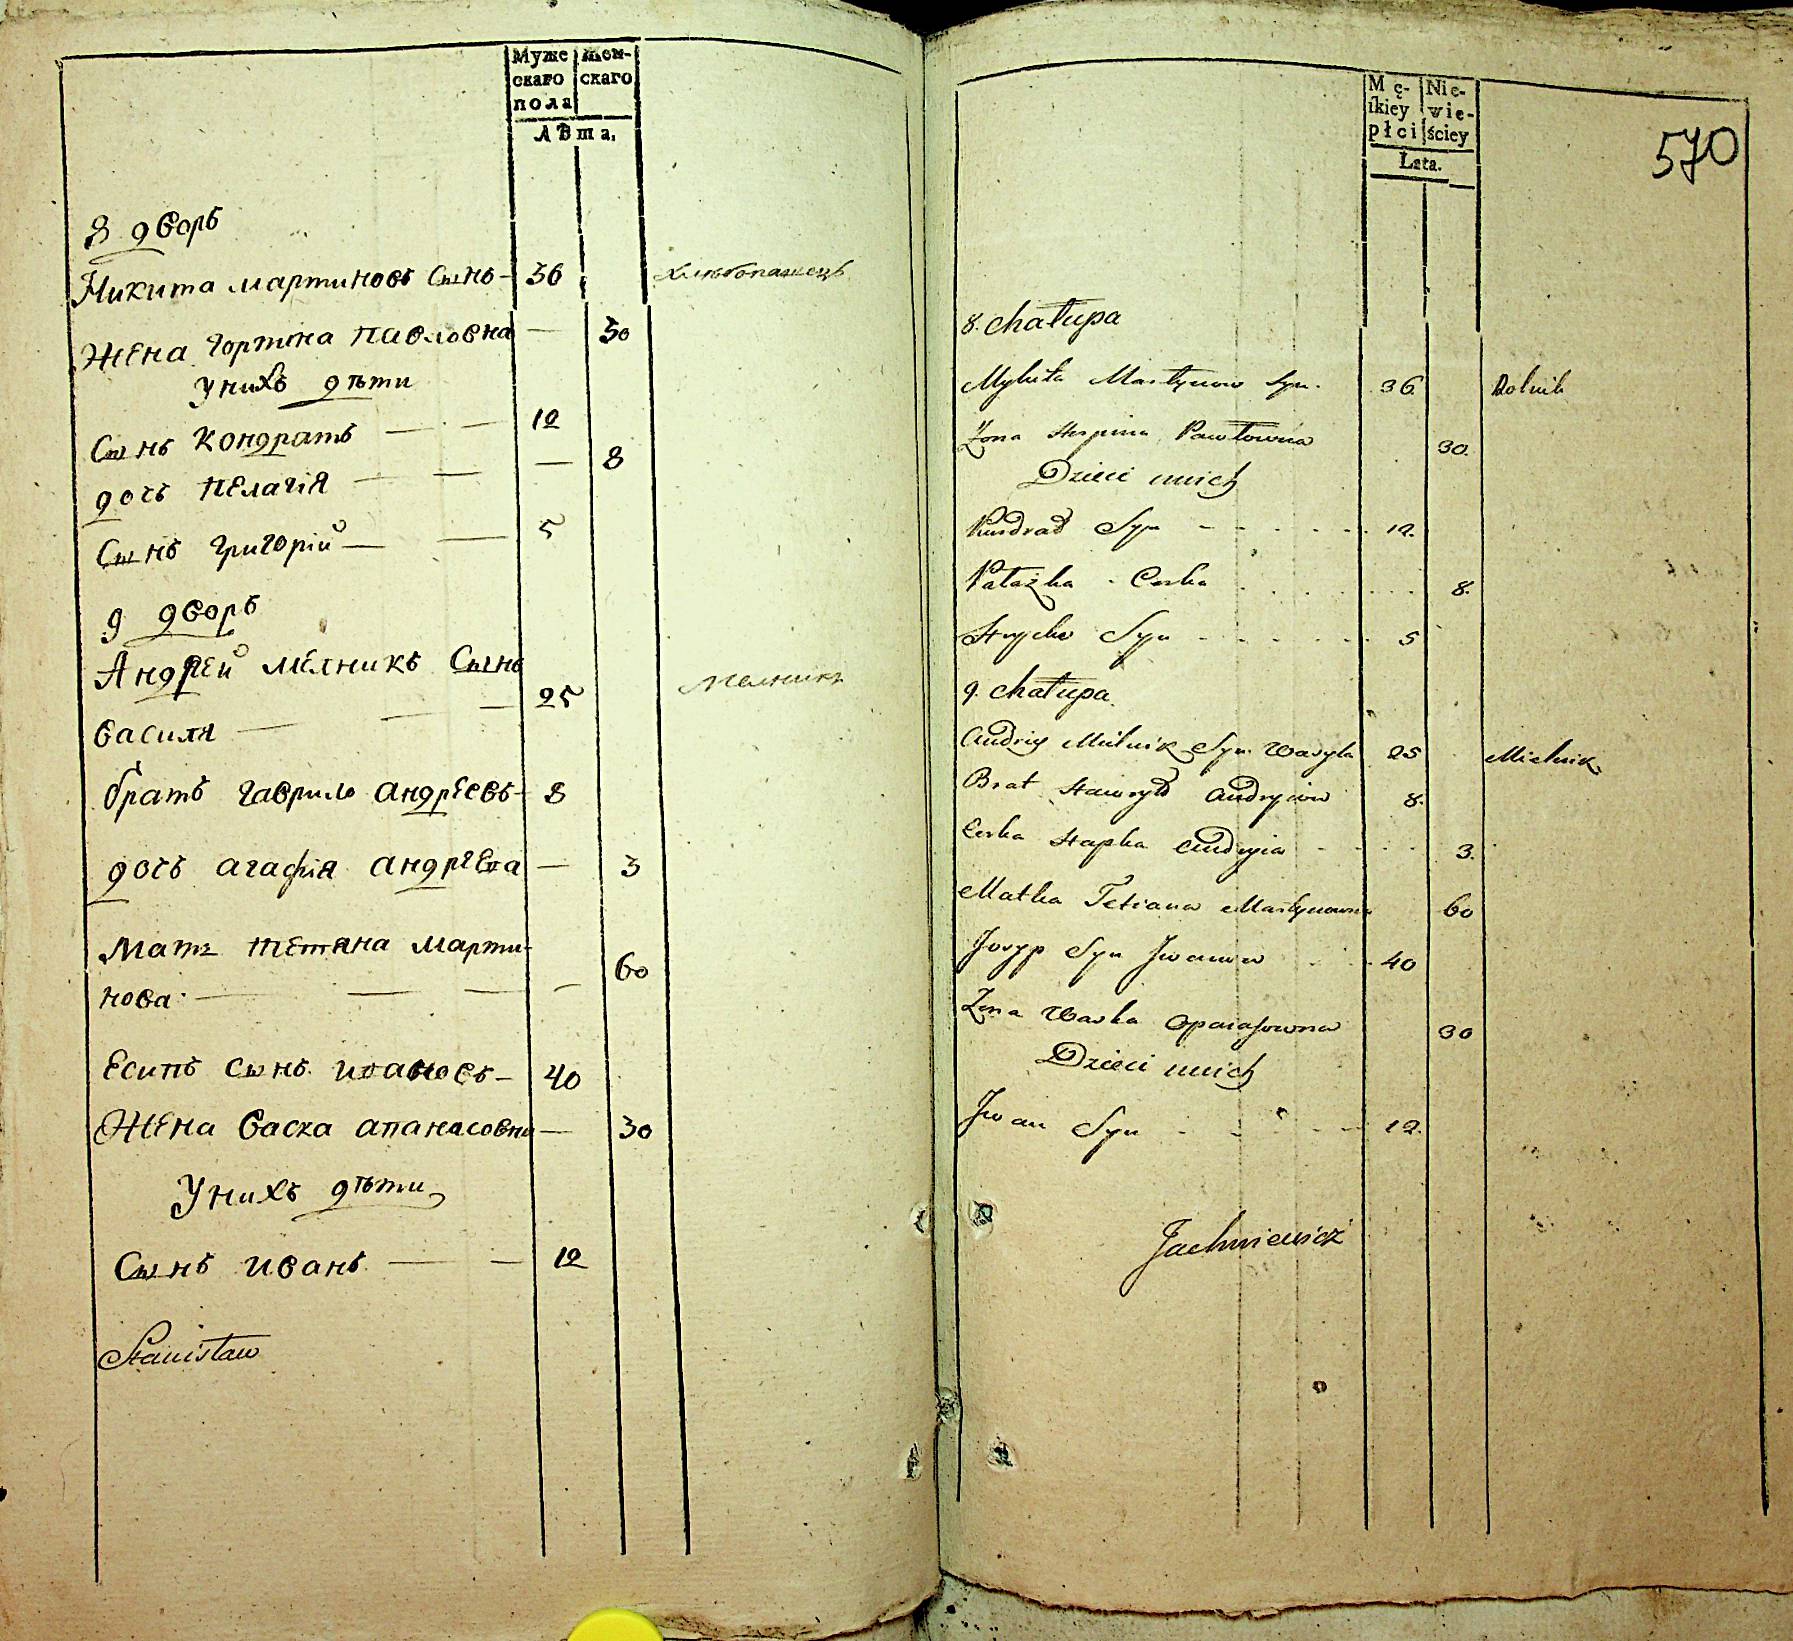 Муже
скаго
пола
Жен-
скаго
Лѣта.
8 дворъ
Никита мартиновъ Сынъ - 36 хлѣбопашецъ
Жена горпина павловна — 30
У нихъ дѣти
Сынъ Кондратъ — — 12
дочь пелагія — — — 8
Сынъ григорій — — 5
9 дворъ
Андрей мелникъ Сынъ
василя — — — 25 мелникъ
братъ гаврило андреевъ - 8
дочь агафія андреева — 3
Мать тетяна марти-
нова — — — — 60
Есипъ сынъ ивановъ - 40
Жена васка апанасовна — 30
У нихъ дѣти
Сынъ иванъ — — 12
Stanisław
Mę-
ſkiey
płci
Nie-
wie-
ściey
Lata.
570
8. chałupa
Mykita Martynow Syn. 36 Rolnik
Żona Horpina Pawłowna 30.
Dzieci unich
Kundrad Syn - - - - - 12.
Pałażka - Corka . . . . . 8.
Hryćko Syn - - - - - 5
9. chałupa
Andriy Mielnik Syn Wasyla 25 Mielnik
Brat Hawryło Andryiow 8.
Corka Hapka Andryia - - - - 3.
Matka Tetiana Martynowna 60
Josyp Syn Iwanow . . . 40
Żona Waska Apanasowna 30
Dzieci unich
Iwan Syn - - - - - 12.
Jachniewicz